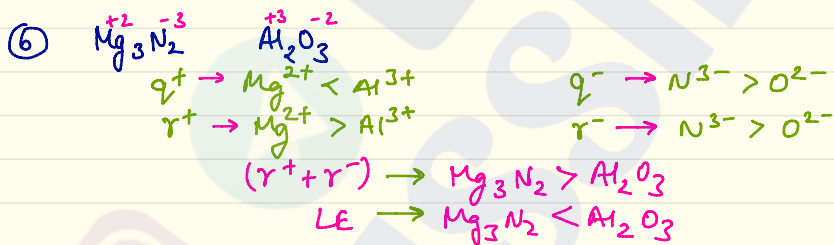 +2 -3 +3 -2
⑥ Mg₃N₂ Al₂O₃
q⁺ → Mg²⁺ < Al³⁺ q⁻ → N³⁻ > O²⁻
r⁺ → Mg²⁺ > Al³⁺ r⁻ → N³⁻ > O²⁻
(r⁺ + r⁻) → Mg₃N₂ > Al₂O₃
LE → Mg₃N₂ < Al₂O₃